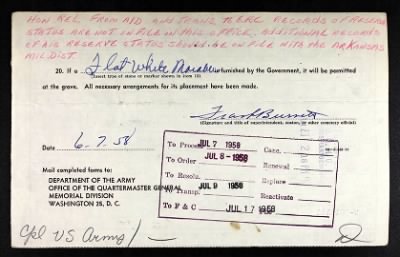 HON REL FROM AID AND TRANS TO ERC RECORDS OF RESERVE
STATUS ARE NOT ON FILE ON THIS OFFICE. ADDITIONAL RECORDS
OF HIS RESERVE STATUS SHOULD BE ON FILE WITH THE ARKANSAS
MIL DIST.
20. If a Flat White Marble furnished by the Government, it will be permitted
(Insert type of stone or marker shown in item 13)
at the grave. All necessary arrangements for its placement have been made.
Frank Burnett
(Signature and title of superintendent, sexton, or other cemetery official)
Date 6-7-58
Mail completed forms to:
DEPARTMENT OF THE ARMY
OFFICE OF THE QUARTERMASTER GENERAL
MEMORIAL DIVISION
WASHINGTON 25, D. C.
To Process JUL 7 1958 Canc.
To Order JUL 8 - 1958 Renewal
To Resolu. Replace
To Transp. JUL 9 1958 Reactivate
To F & C JUL 17 1958
Cpl US Army / -
D